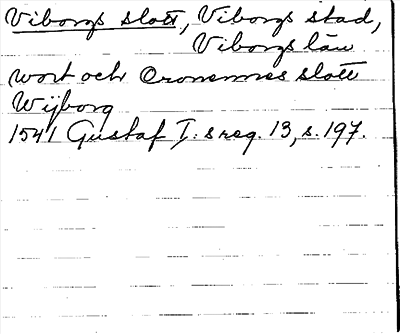 Viborgs slott, Viborgs stad,
Viborgs län
wort och Cronennes slott
Wijborg
1541 Gustaf I: s reg. 13, s. 197.